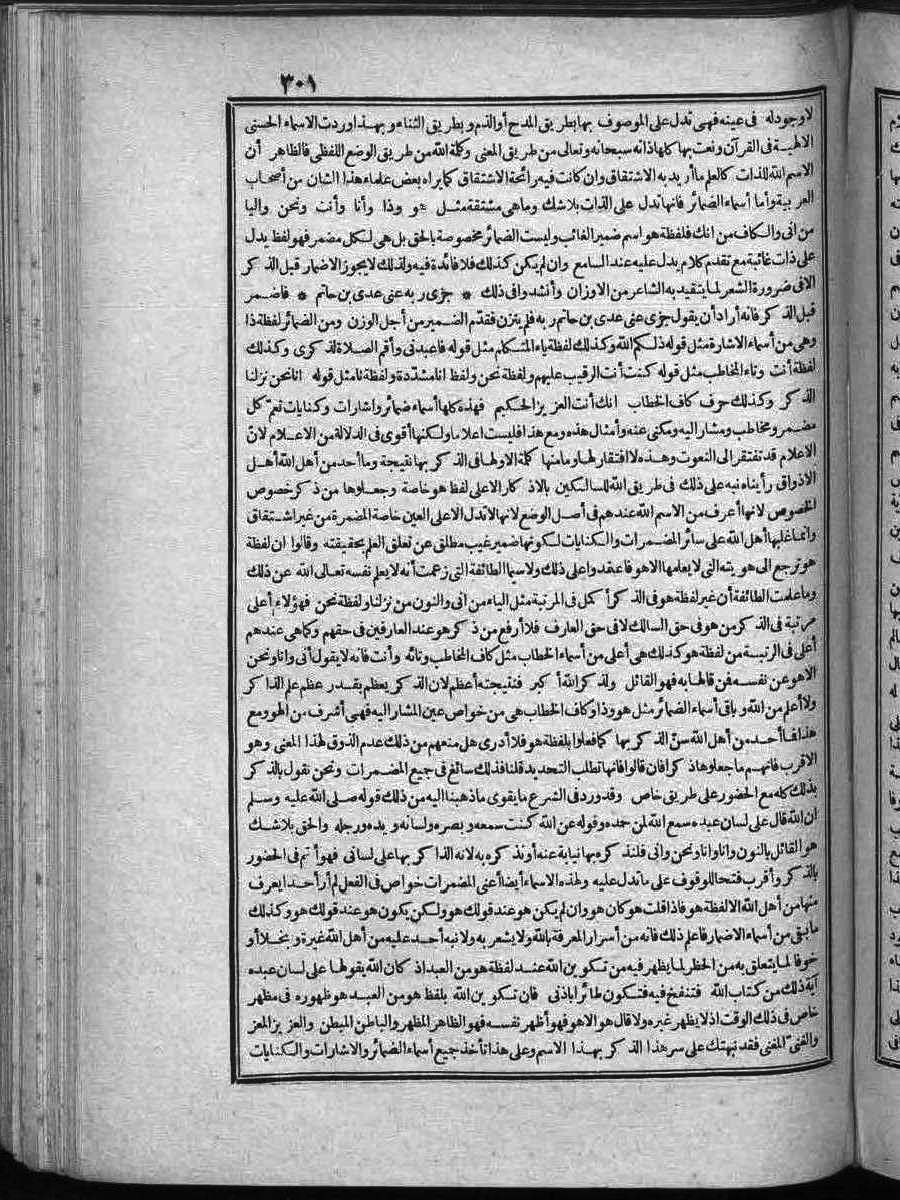 ٣٠١
لاوجودله في عينه فهي تدل على الموصوف بها بطريق المدح أو الذم وبطريق الثناء وبهذا وردت الاسماء الحسنى
الالهية في القرآن ونعت بها كلها ذاته سبحانه وتعالى من طريق المعنى وكلمة الله من طريق الوضع اللفظي فالظاهر أن
الاسم الله للذات كالعلم ما أريد به الاشتقاق وان كانت فيه رائحة الاشتقاق كما يراه بعض علماء هذا الشان من أصحاب
العربية وأما أسماء الضمائر فانها تدل على الذات بلا شك وما هي مشتقة مثل هو وذا وأنا وأنت ونحن واليا
من انى والكاف من انك فلفظة هو اسم ضمير الغائب وليست الضمائر مخصوصة بالحق بل هي لكل مضمر فهو لفظ يدل
على ذات غائبة مع تقدم كلام يدل عليه عند السامع وان لم يكن كذلك فلا فائدة فيه ولذلك لا يجوز الاضمار قبل الذكر
الا في ضرورة الشعر لما يتقيد به الشاعر من الاوزان وأنشدوا في ذلك * جزى ربه عنى عدى بن حاتم * فاضمر
قبل الذكر فانه أراد أن يقول جزى عنى عدى بن حاتم ربه فلم يتزن فقدم الضمير من أجل الوزن ومن الضمائر لفظة ذا
وهي من أسماء الاشارة مثل قوله ذلكم الله وكذلك لفظة ياء المتكلم مثل قوله فاعبدنى وأقم الصلاة لذكرى وكذلك
لفظة أنت وتاء المخاطب مثل قوله كنت أنت الرقيب عليهم ولفظة نحن ولفظ انا مشدّدة ولفظة نا مثل قوله انا نحن نزلنا
الذكر وكذلك حرف كاف الخطاب انك أنت العزيز الحكيم فهذه كلها أسماء ضمائر واشارات وكنايات تعمّ كل
مضمر ومخاطب ومشار اليه ومكنى عنه وأمثال هذه ومع هذا فليست اعلاما ولكنها أقوى في الدلالة من الاعلام لانّ
الاعلام قد تفتقر الى النعوت وهذه لا افتقار لها وما منها كلمة الا ولها في الذكر بها نتيجة وما أحد من أهل الله أهل
الاذواق رأيناه نبه على ذلك في طريق الله للسالكين بالاذكار الا على لفظ هو خاصة وجعلوها من ذكر خصوص
الخصوص لانها أعرف من الاسم الله عندهم في أصل الوضع لانها لا تدل الا على العين خاصة المضمرة من غير اشتقاق
وانما غلبها أهل الله على سائر المضمرات والكنايات لكونها ضمير غيب مطلق عن تعلق العلم بحقيقته وقالوا ان لفظة
هو ترجع الى هويته التي لا يعلمها الا هو فاعتمدوا على ذلك ولا سيما الطائفة التي زعمت أنه لا يعلم نفسه تعالى الله عن ذلك
وما علمت الطائفة أن غير لفظة هو في الذكر أكمل في المرتبة مثل الياء من انى والنون من نزلنا ولفظة نحن فهؤلاء أعلى
مرتبة في الذكر من هو في حق السالك لا في حق العارف فلا أرفع من ذكر هو عند العارفين في حقهم وكما هي عندهم
أعلى في الرتبة من لفظة هو كذلك هي أعلى من أسماء الخطاب مثل كاف المخاطب وتائه وأنت فانه لا يقول أنى وانا ونحن
الا هو عن نفسه فمن قالها به فهو القائل ولذكر الله أكبر فنتيجته أعظم لان الذكر يعظم بقدر عظم علم الذاكر
ولا أعلم من الله وباقى أسماء الضمائر مثل هو وذا وكاف الخطاب هي من خواص عين المشار اليه فهي أشرف من الهو ومع
هذا فما أحد من أهل الله سنّ الذكر بها كما فعلوا بلفظة هو فلا أدرى هل منعهم من ذلك عدم الذوق لهذا المعنى وهو
الاقرب فانهم ما جعلوها ذكرا فان قالوا فانها تطلب التحديد قلنا فذلك سائغ في جميع المضمرات ونحن نقول بالذكر
بذلك كله مع الحضور على طريق خاص وقد ورد في الشرع ما يقوى ما ذهبنا اليه من ذلك قوله صلى الله عليه وسلم
ان الله قال على لسان عبده سمع الله لمن حمده وقوله عن الله كنت سمعه وبصره ولسانه ويده ورجله والحق بلا شك
هو القائل بالنون وانا وانا ونحن وانى فلنذكره بها نيابة عنه أو نذكره به لانه الذاكر بها على لسانى فهو أتم في الحضور
بالذكر وأقرب فتحا للوقوف على ما تدل عليه ولهذه الاسماء أيضا أعنى المضمرات خواص في الفعل لم أر أحدا يعرف
منها من أهل الله الا لفظة هو فاذا قلت هو كان هو وان لم يكن هو عند قولك هو ولكن يكون هو عند قولك هو وكذلك
ما بقى من أسماء الاضمار فاعلم ذلك فانه من أسرار المعرفة بالله ولا يشعر به ولا نبه أحد عليه من أهل الله غيرة وبخلا أو
خوفا لما يتعلق به من الخطر لما يظهر فيه من تكوين الله عند لفظة هو من العبد اذ كان الله يقولها على لسان عبده
آية ذلك من كتاب الله فتنفخ فيه فتكون طائرا باذنى فان تكوين الله بلفظ هو من العبد هو ظهوره في مظهر
خاص في ذلك الوقت اذ لا يظهر غيره ولا قال هو الا هو فهو أظهر نفسه فهو الظاهر المظهر والباطن المبطن والعزيز المعز
والغنىّ المغنى فقد نبهتك على سر هذا الذكر بهذا الاسم وعلى هذا تأخذ جميع أسماء الضمائر والاشارات والكنايات